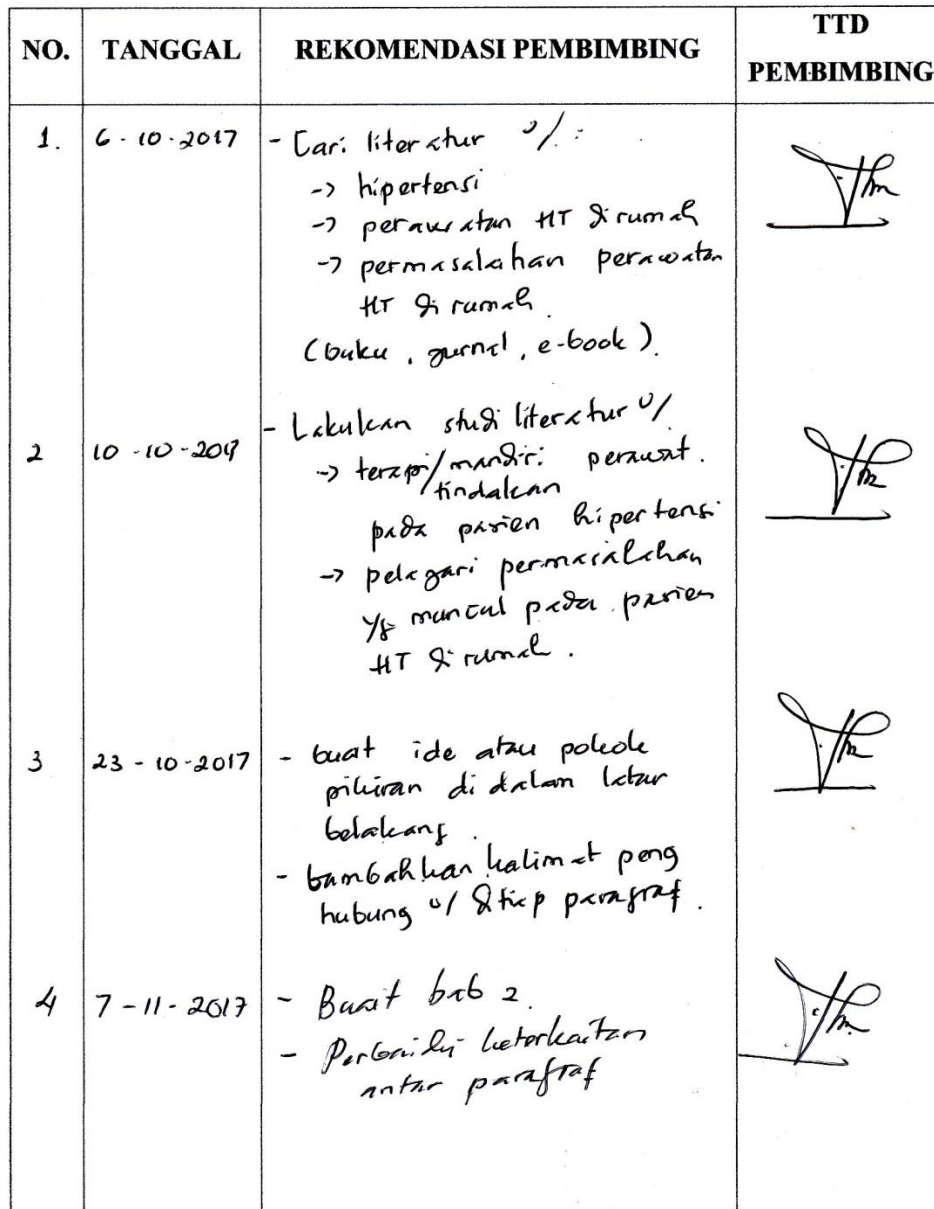 NO. TANGGAL REKOMENDASI PEMBIMBING TTD PEMBIMBING
1. 6-10-2017 - Cari literatur u/ :
-> hipertensi
-> perawatan HT di rumah
-> permasalahan perawatan
HT di rumah.
(buku, jurnal, e-book).
2 10-10-2017 - Lakukan studi literatur u/
-> terapi/mandiri perawat.
tindakan
pada pasien hipertensi
-> pelajari permasalahan
yg muncul pada pasien
HT di rumah.
3 23-10-2017 - buat ide atau pokok
pikiran di dalam latar
belakang.
- tambahkan kalimat peng
hubung u/ setiap paragraf.
4 7-11-2017 - Buat bab 2.
- Perbaiki keterkaitan
antar paragraf